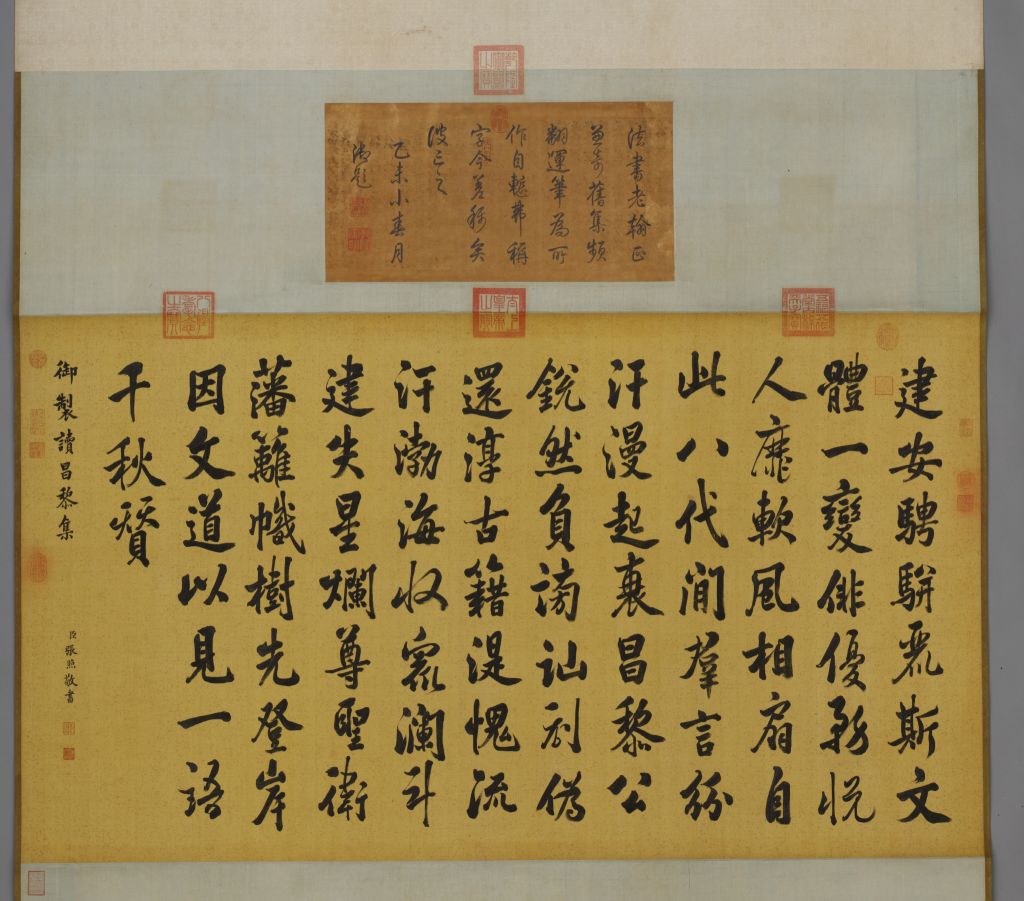 法書老翰正
兼奇舊集頻
翻運筆為所
作自慙弗稱
字今差稱矣
乙未小春月
御題
建安騁駢麗斯文
體一變俳優務悅
人靡軟風相扇自
此八代間羣言紛
汗漫起衰昌黎公
銳然負謗訕刮偽
還淳古籍湜愧流
汗渤海收眾瀾斗
建失星爛尊聖衛
藩籬幟樹先登岸
因文道以見一語
千秋贊
御製讀昌黎集
臣張照敬書